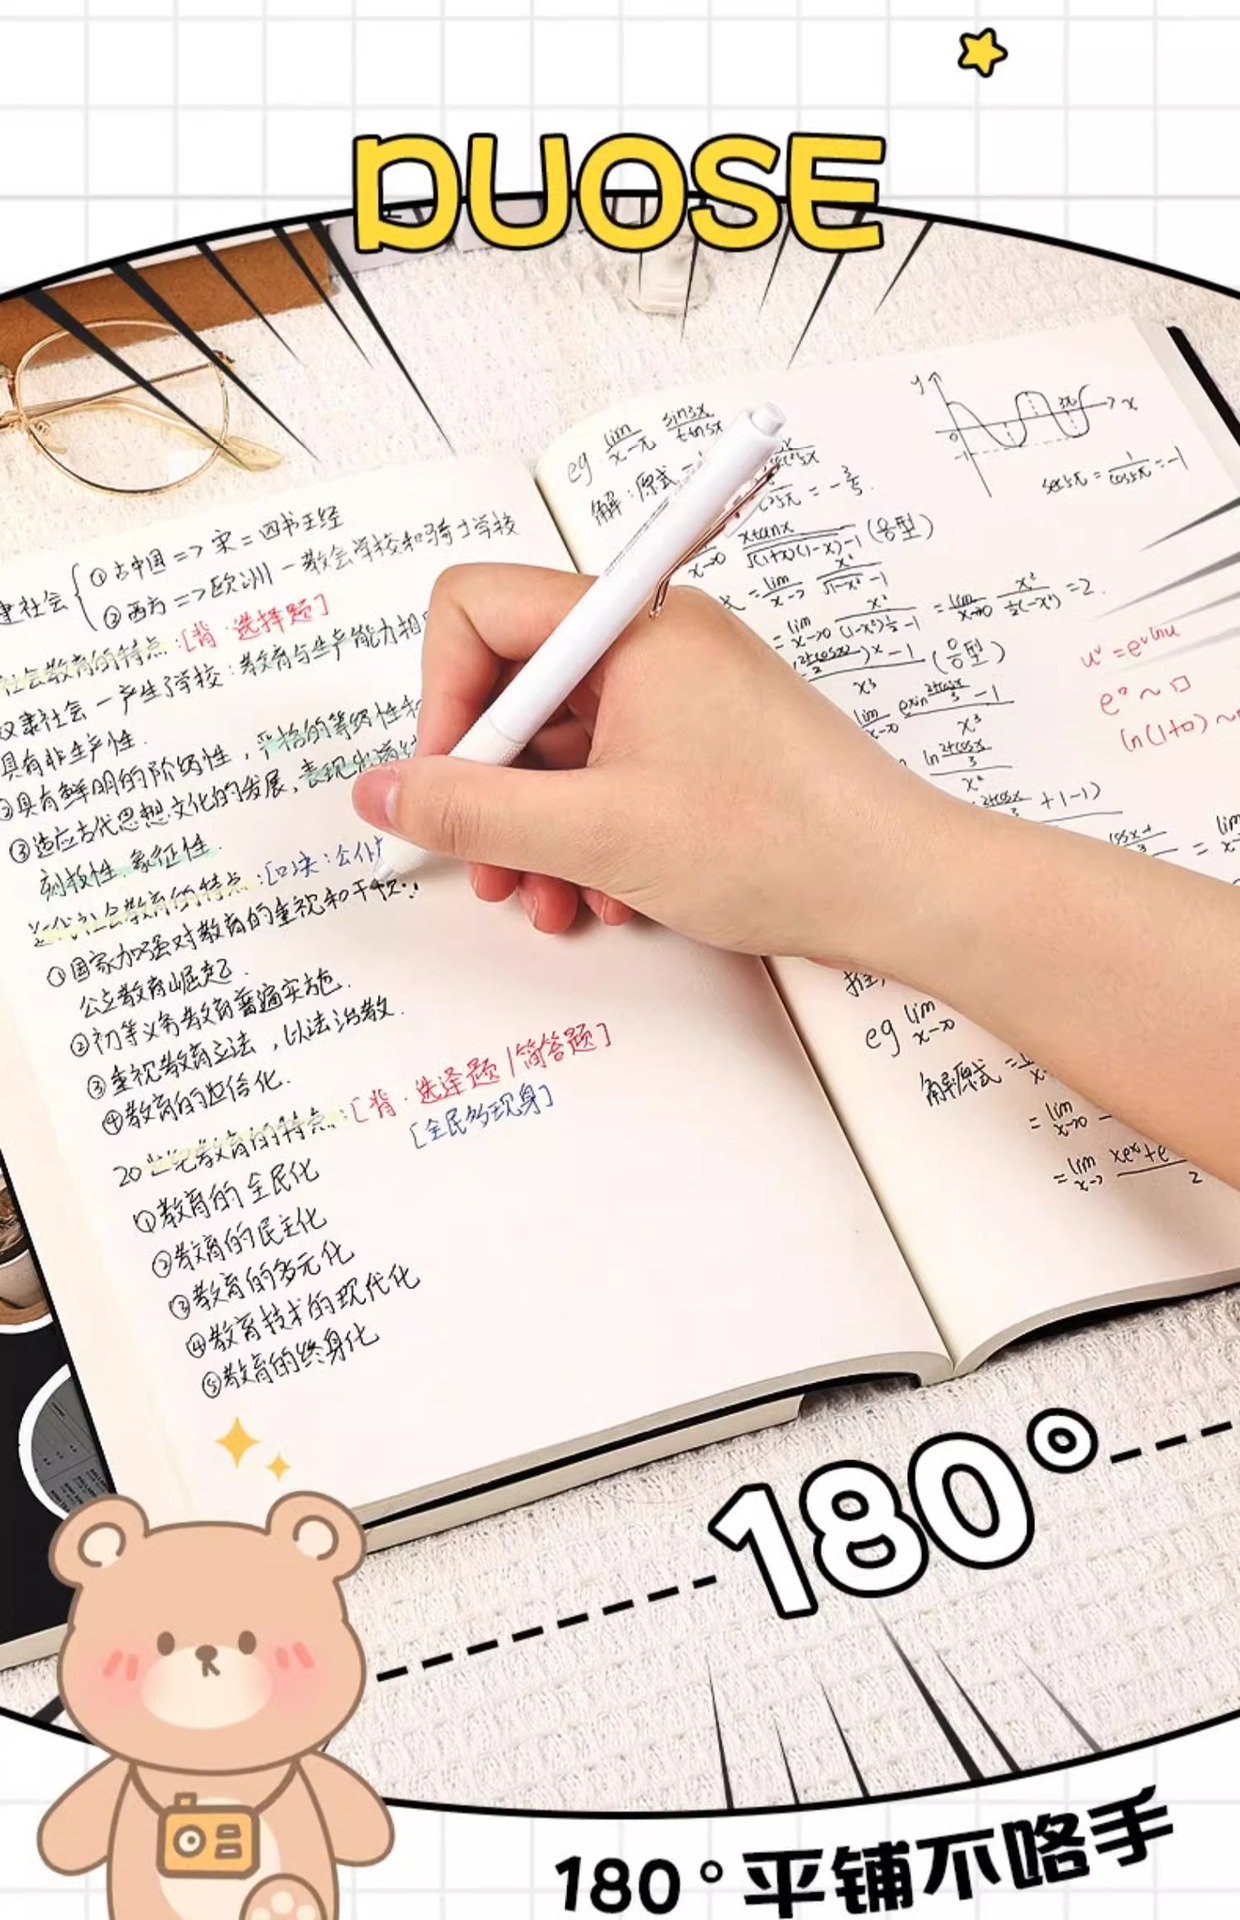 DUOSE
建社会 ①古中国 => 宋 = 四书五经
②西方 => 欧洲 — 教会学校和骑士学校
社会教育的特点:[背·选择题]
奴隶社会 — 产生了学校:教育与生产能力相
具有非生产性.
②具有鲜明的阶级性,严格的等级性和
③适应古代思想文化的发展,表现出
刻板性、象征性.
近代社会教育的特点:[口决:公仆
①国家加强对教育的重视和干预:
公立教育崛起.
②初等义务教育普遍实施.
③重视教育立法,以法治教.
④教育的世俗化.
20世纪教育的特点:[背·选择题/简答题]
[全民多现身]
①教育的全民化
②教育的民主化
③教育的多元化
④教育技术的现代化
⑤教育的终身化
eg lim x→π sin3x/tan5x
解:原式 =
= -3/5.
y x 3π
sec5π = 1/cos5π = -1
x→0 xtanx/√(1+x)(1-x)-1 (0/0型)
= lim x→ x²/√1-x² -1
= lim x→0 x²/(1-x²)½-1 = lim x→0 x²/½(-x²) = 2.
(0/0型)
x³
lim x→0 e^xln(2+cosx/3) -1/x³
ln 2+cosx/3
x²
2+cosx/3 +1-1)
cosx-1/3 = lim
u^v = e^vlnu
e^□ ~ □
ln(1+□) ~
eg lim x→∞
解:原式 =
= lim x→0
= lim x→ xe^x+e/2
180°
180°平铺不咯手